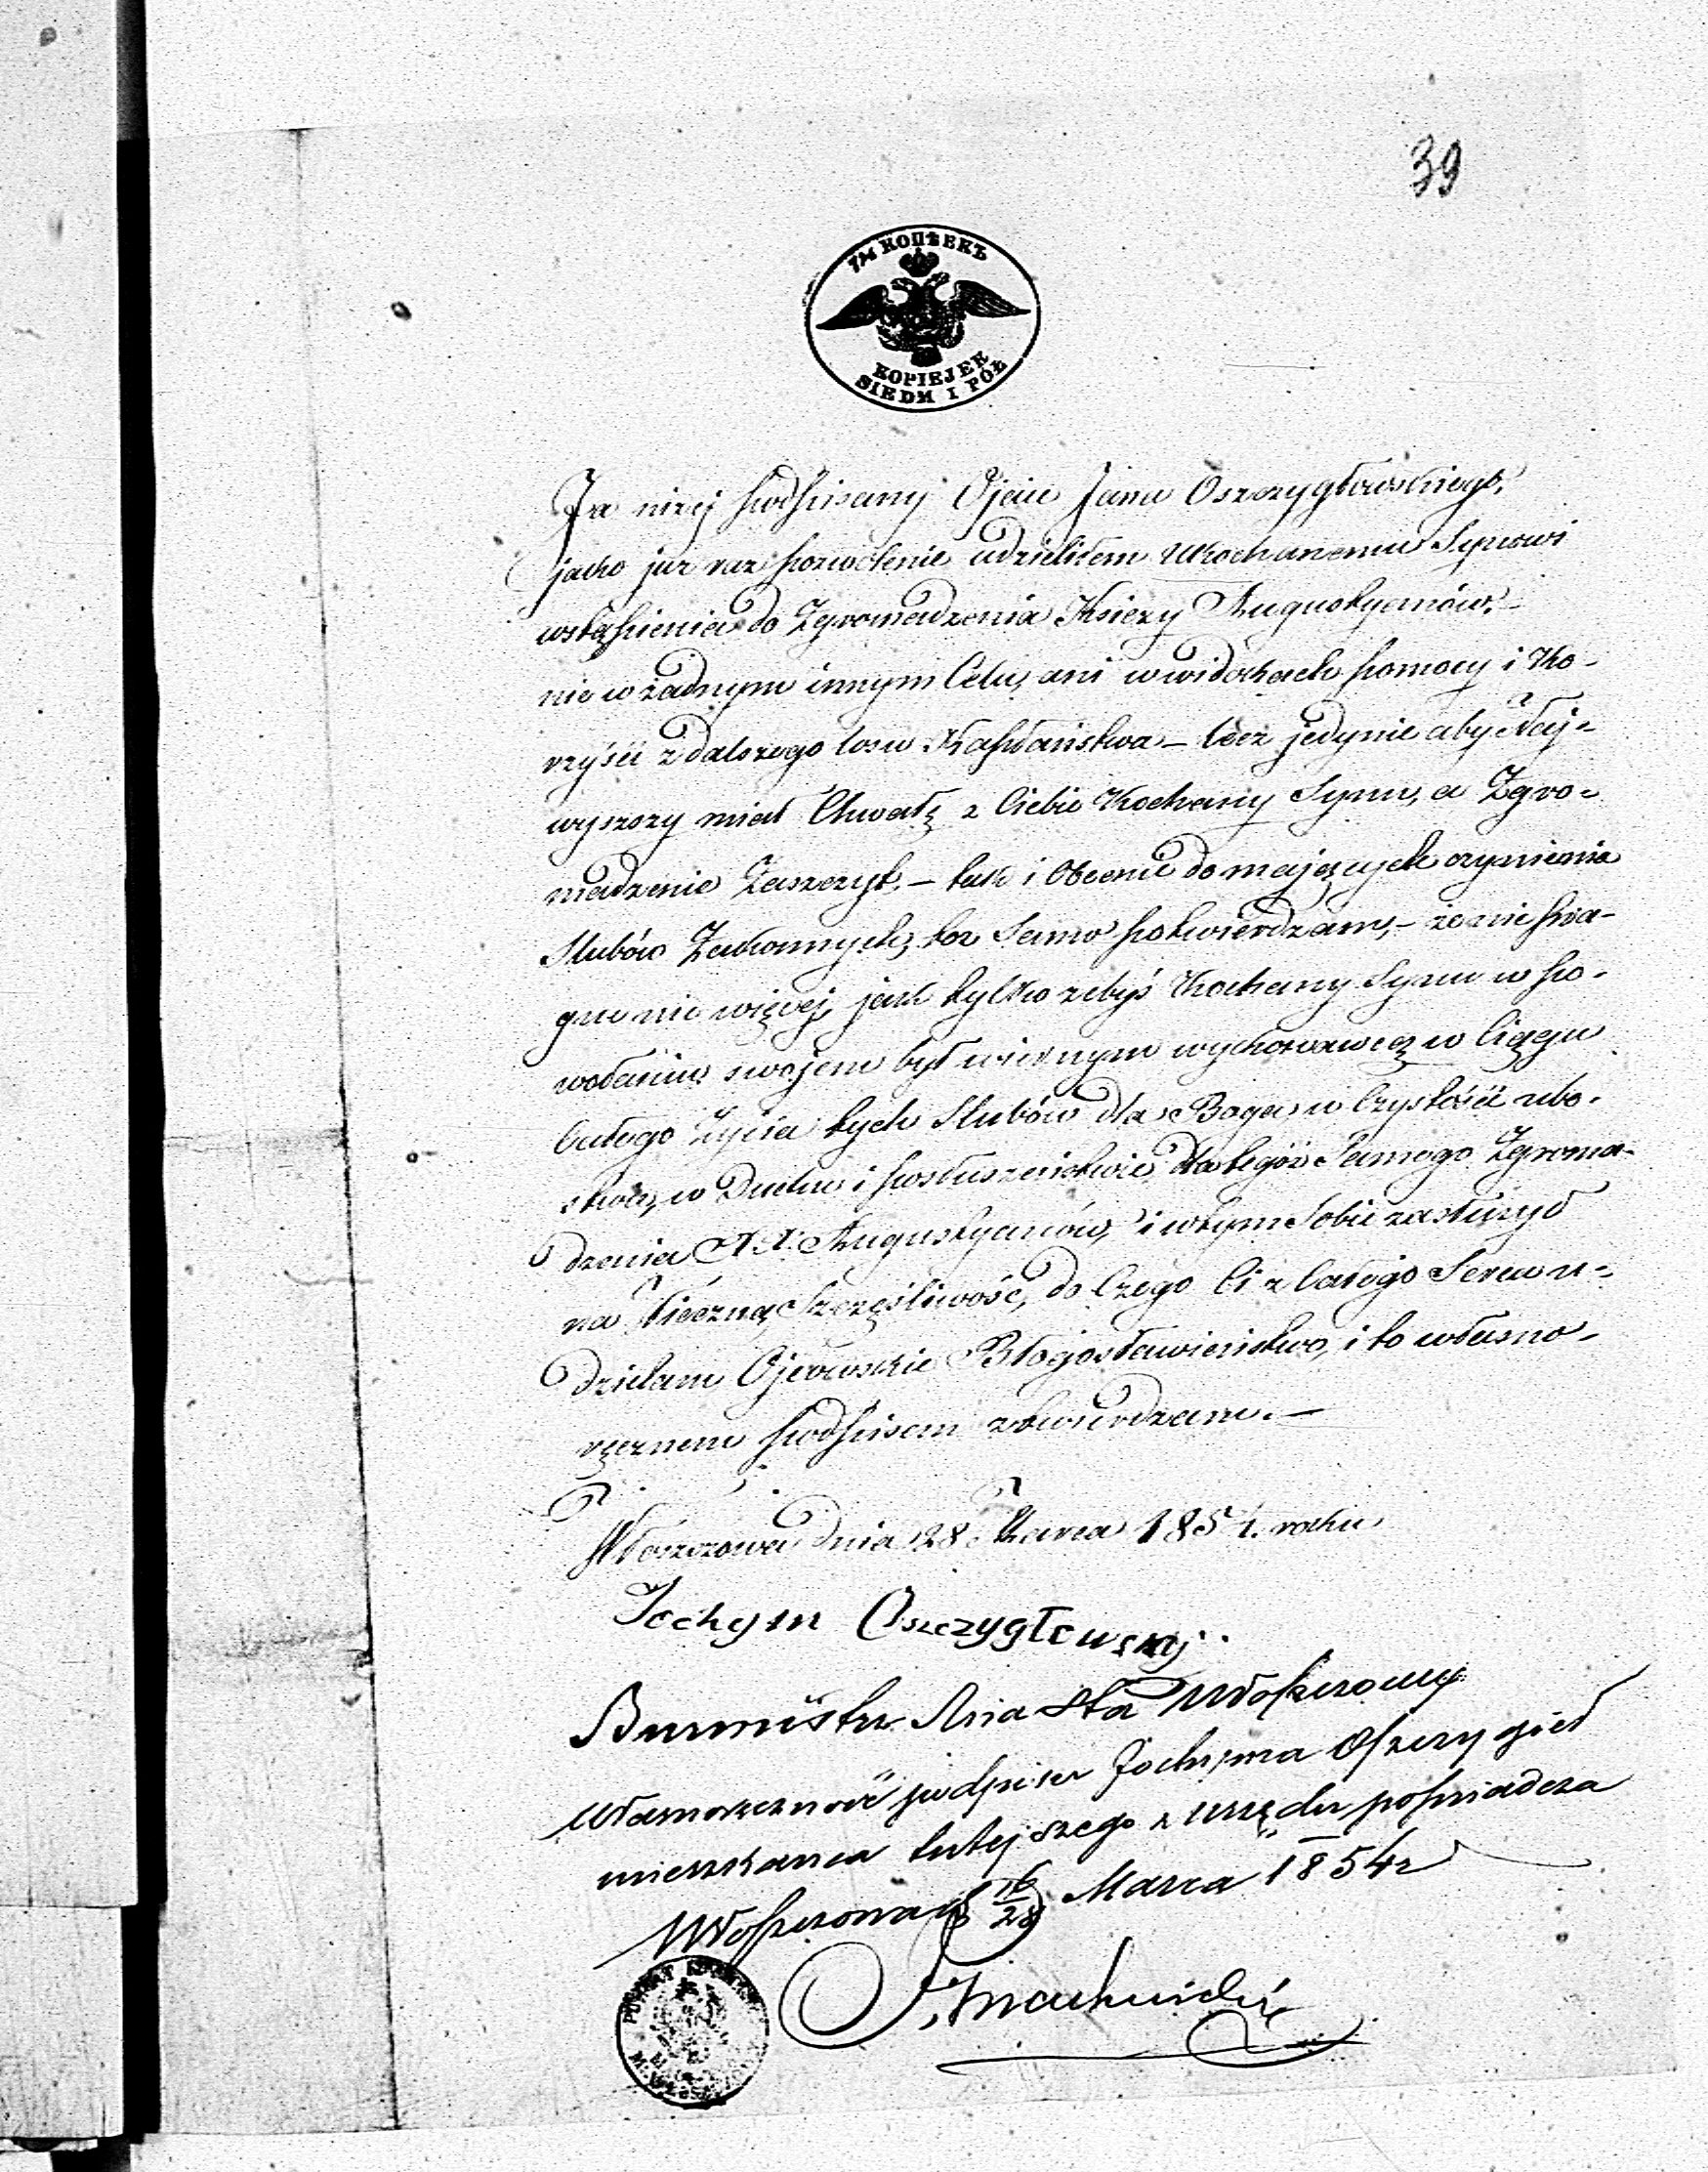 39
7½ КОПѢЕКЪ
KOPIEJEK
SIEDM I PÓŁ
Ja niżej podpisany Ojciec Jana Oszczygłowskiego,
jako już raz pozwolenie udzieliłem Ukochanemu Synowi
wstąpienia do Zgromadzenia Księży Augustyanów,–
nie w żadnym innym Celu, ani w widokach pomocy i Ko-
rzyści z dalszego losu Kapłaństwa – lecz jedynie aby Naj-
wyszszy miał Chwałę z Ciebie Kochany Synu, a Zgro-
madzenie Zaszczyt, – tak i Obecnie do mających czynienia
Slubów Zakonnych, toż Samo potwierdzam, – że nie pra-
gnę nic więcej, jak tylko żebyś Kochany Synu w po-
wołaniu swojem był wiernym wychowawcą w Ciągu
Całego Życia tych Slubów dla Boga w Czystości ubo-
stwa, w Duchu i posłuszeństwie dla tegóż Samego Zgroma-
dzenia XX. Augustyanów, i w tym Sobie zasłużył
na Wieczną Szczęśliwość, do Czego Ci z Całego Serca u-
dzielam Ojcowskie Błogosławieństwo, i to własno-
ręcznem podpisem zatwierdzam. –
Włoszczowa Dnia 28 Marca 1854. roku
Jochym Oszczygłowskij.
Burmistrz Miasta Włoszczowy
Własnoręczność podpisu Jochyma Oszczygieł
mieszkańca tutejszego z urzędu poświadcza
Włoszczowa d 16/28 Marca 1854 r
POWIAT